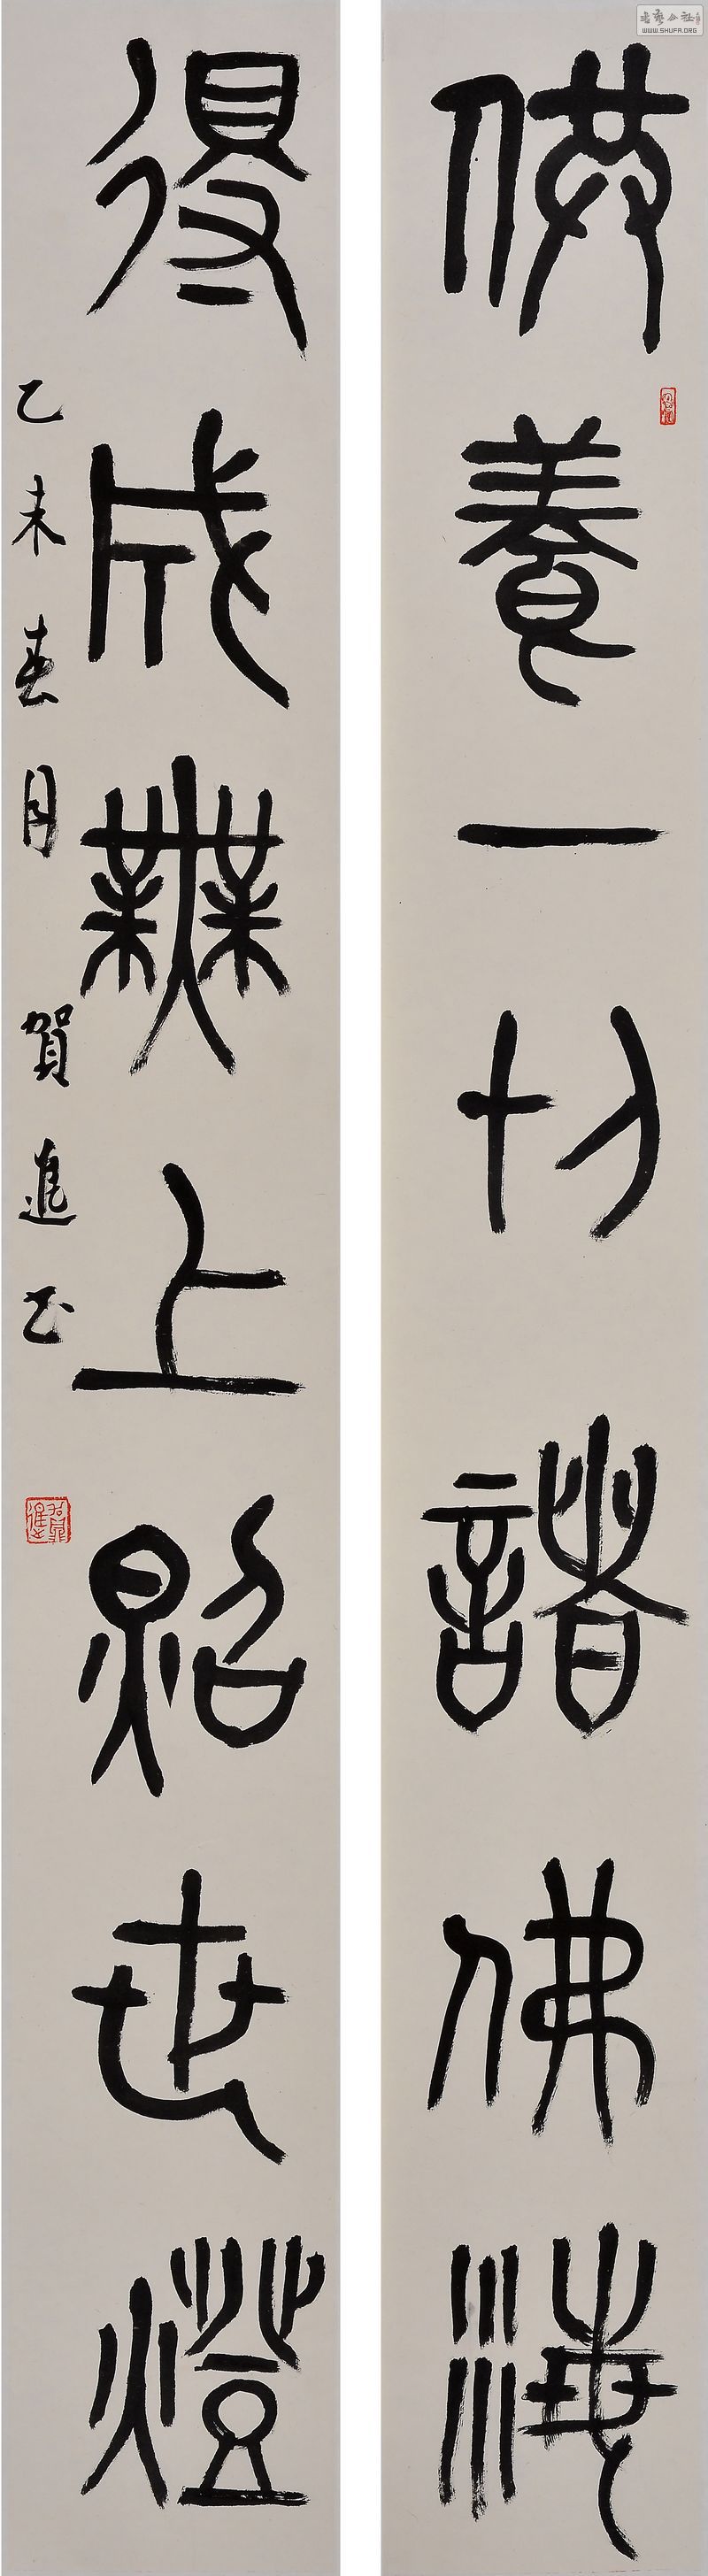 供養一切諸佛海
得成無上照世燈
乙未春月賀進书
WWW.SHUFA.ORG